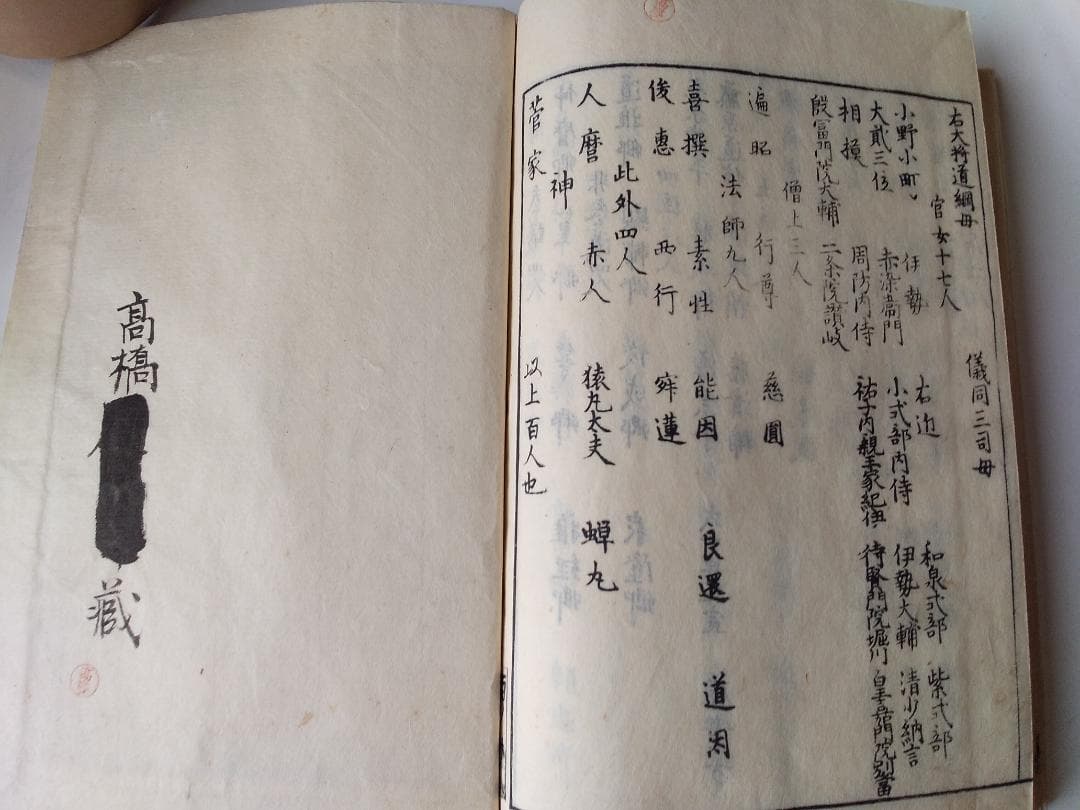 右大将道綱母 儀同三司母
官女十七人
小野小町 伊勢 右近 和泉式部 紫式部
大貳三位 赤染衛門 小式部内侍 伊勢大輔 清少納言
相模 周防内侍 祐子内親王家紀伊 待賢門院堀川 皇嘉門院別當
殷富門院大輔 二条院讃岐
僧上三人
遍昭 行尊 慈圓
法師九人
喜撰 素性 能因 良暹 道因
俊惠 西行 寂蓮
此外四人
人麿 赤人 猿丸太夫 蝉丸
神
菅家 以上百人也
高橋
藏